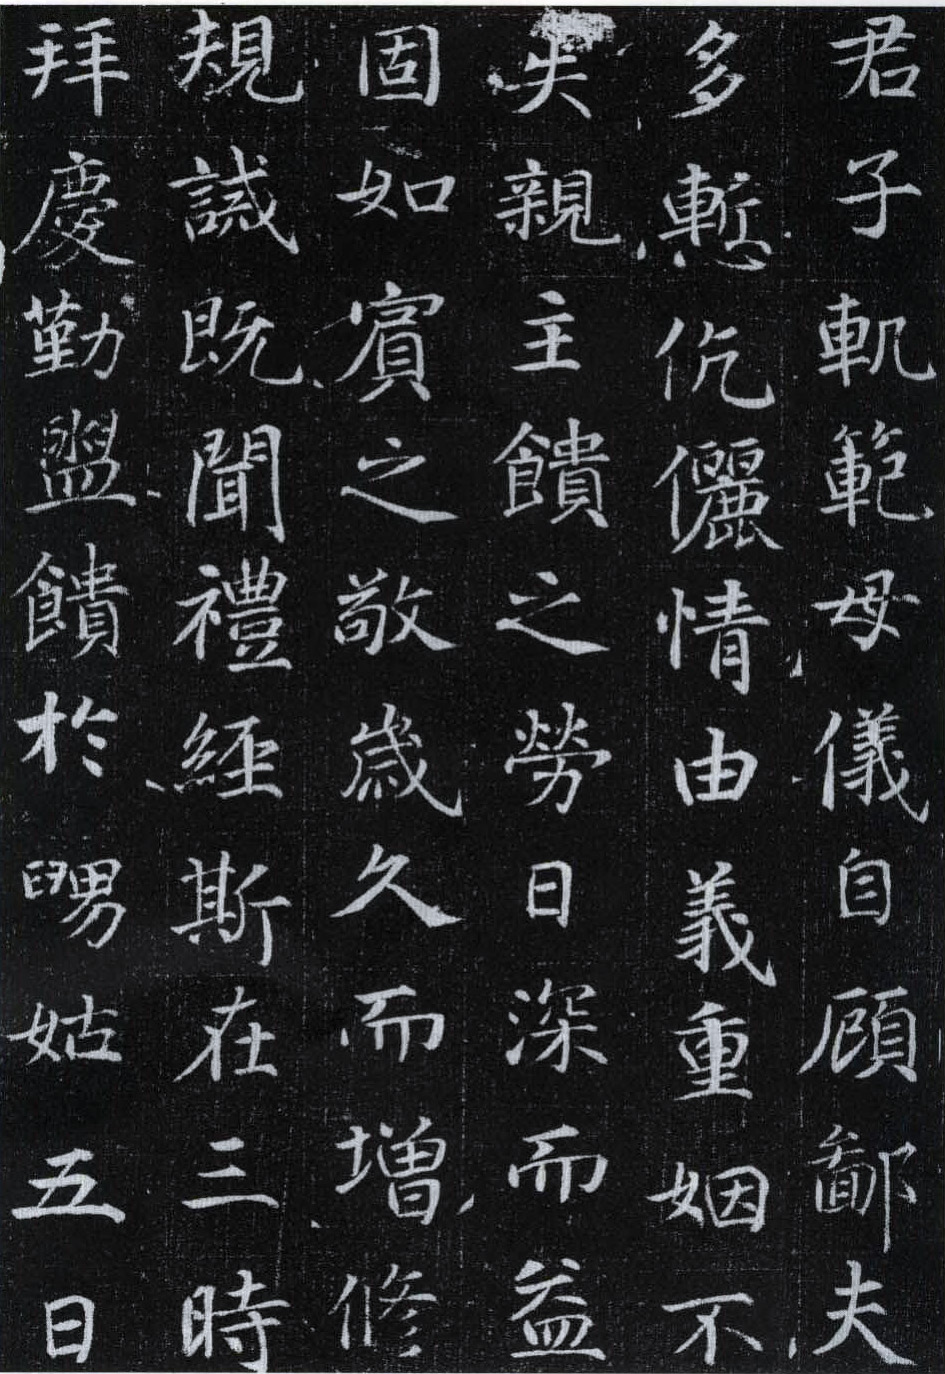 君子軌範母儀自顧鄙夫
多慙伉儷情由義重姻不
失親主饋之勞日深而益
固如賓之敬歲久而增修
規誡既聞禮經斯在三時
拜慶勤盥饋於舅姑五日